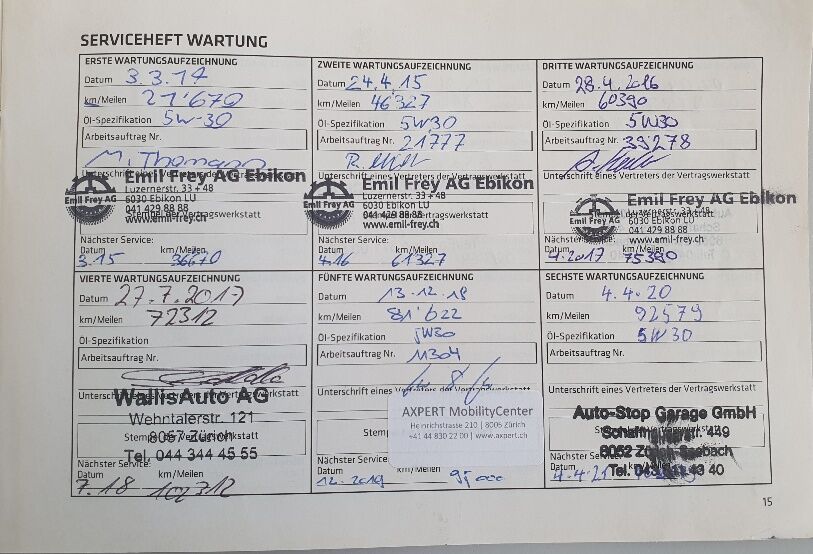 SERVICEHEFT WARTUNG
ERSTE WARTUNGSAUFZEICHNUNG
Datum 3.3.14
km/Meilen 21'670
Öl-Spezifikation 5W-30
Arbeitsauftrag Nr.
M. Thomann
Unterschrift eines Vertreters der Vertragswerkstatt
Emil Frey AG Ebikon
Luzernerstr. 33 + 48
6030 Ebikon LU
041 429 88 88
www.emil-frey.ch
Emil Frey AG
Stempel der Vertragswerkstatt
Nächster Service:
Datum km/Meilen
3.15 36670
ZWEITE WARTUNGSAUFZEICHNUNG
Datum 24.4.15
km/Meilen 46'327
Öl-Spezifikation 5W30
Arbeitsauftrag Nr. 21777
Unterschrift eines Vertreters der Vertragswerkstatt
Emil Frey AG Ebikon
Luzernerstr. 33 + 48
6030 Ebikon LU
041 429 88 88
www.emil-frey.ch
Emil Frey AG
Vertragswerkstatt
Nächster Service:
Datum km/Meilen
4.16 61327
DRITTE WARTUNGSAUFZEICHNUNG
Datum 28.4.2016
km/Meilen 60390
Öl-Spezifikation 5W30
Arbeitsauftrag Nr. 39278
Unterschrift eines Vertreters der Vertragswerkstatt
Emil Frey AG Ebikon
Luzernerstr. 33 + 48
6030 Ebikon LU
041 429 88 88
www.emil-frey.ch
Emil Frey AG
Nächster Service:
Datum km/Meilen
4.2017 75390
VIERTE WARTUNGSAUFZEICHNUNG
Datum 27.7.2017
km/Meilen 72312
Öl-Spezifikation
Arbeitsauftrag Nr.
Unterschrift eines Vertreters der Vertragswerkstatt
WallisAuto AG
Wehntalerstr. 121
8057 Zürich
Tel. 044 344 45 55
Nächster Service:
Datum km/Meilen
7.18 102312
FÜNFTE WARTUNGSAUFZEICHNUNG
Datum 13.12.18
km/Meilen 81'622
Öl-Spezifikation 5W30
Arbeitsauftrag Nr. 11304
Unterschrift eines Vertreters der Vertragswerkstatt
AXPERT MobilityCenter
Heinrichstrasse 210 | 8005 Zürich
+41 44 830 22 00 | www.axpert.ch
Nächster Service:
Datum km/Meilen
12.2019
SECHSTE WARTUNGSAUFZEICHNUNG
Datum 4.4.20
km/Meilen 92579
Öl-Spezifikation 5W30
Arbeitsauftrag Nr.
Unterschrift eines Vertreters der Vertragswerkstatt
Auto-Stop Garage GmbH
Schaffhauserstr. 449
8052 Zürich-Seebach
Nächster Service:
Datum
4.4.21
15